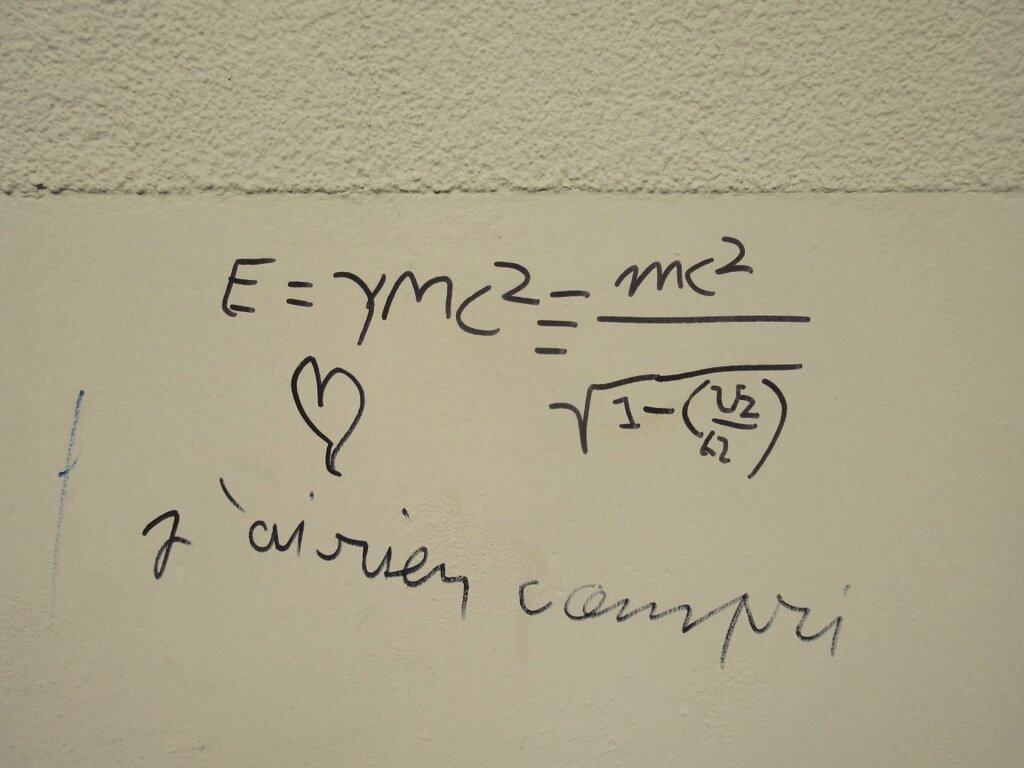 E = γmc² = mc² / √1 - (v2/c2)
j'ai rien compri